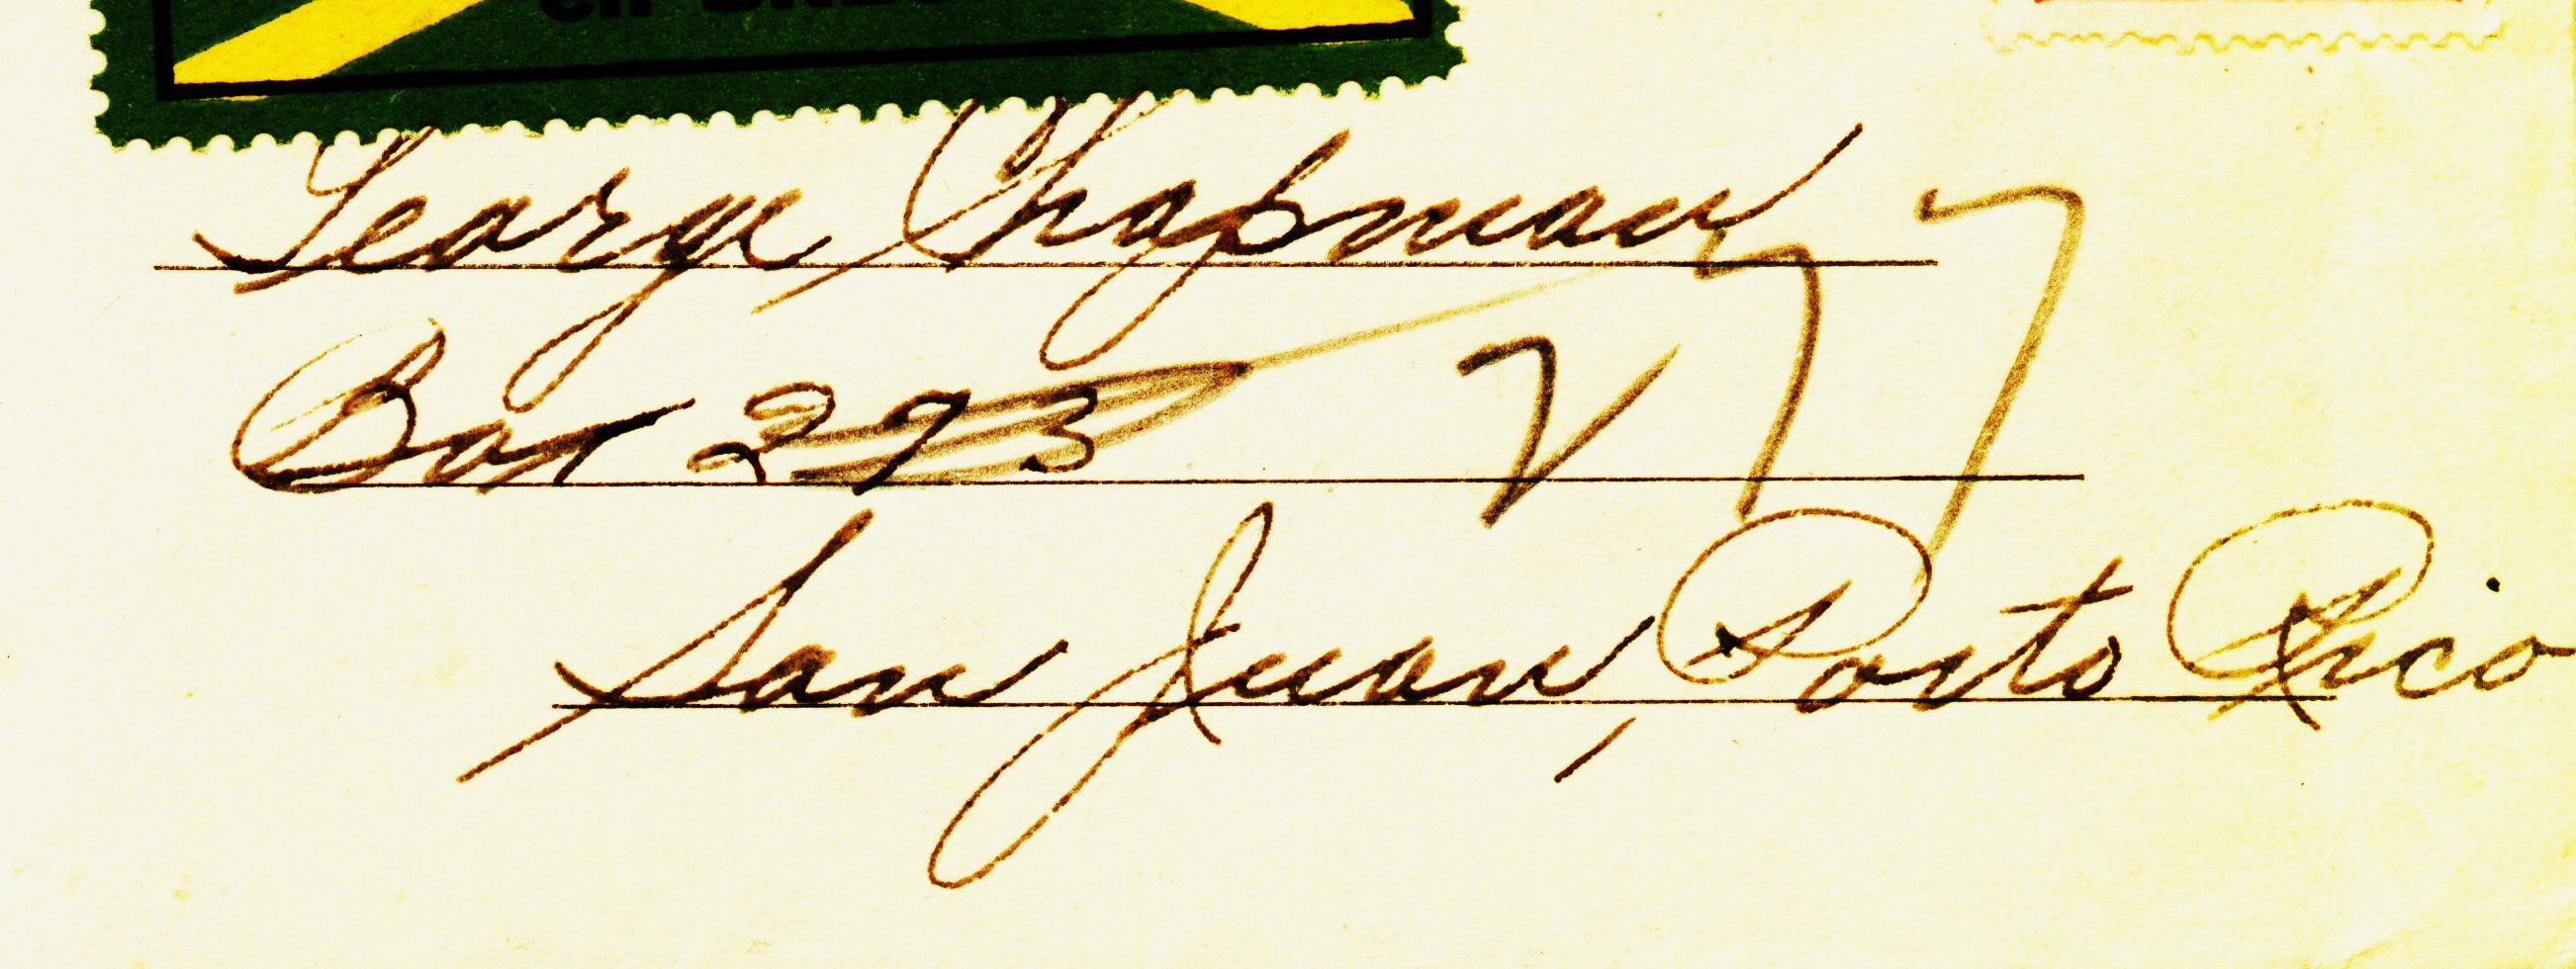 en
George Chapman
Box 293
San Juan, Porto Rico